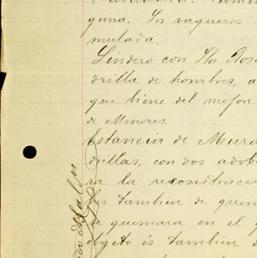 guna. Los vaqueros
mulada.
Lindero con Sta Rosa
drilla de hombres, a
que viene del mojon
de Menores.
Estancia de Mura
drillas, con dos adob
ra la reconstrucc
les tambien de quen
de quemara en el p
objeto is tambien d